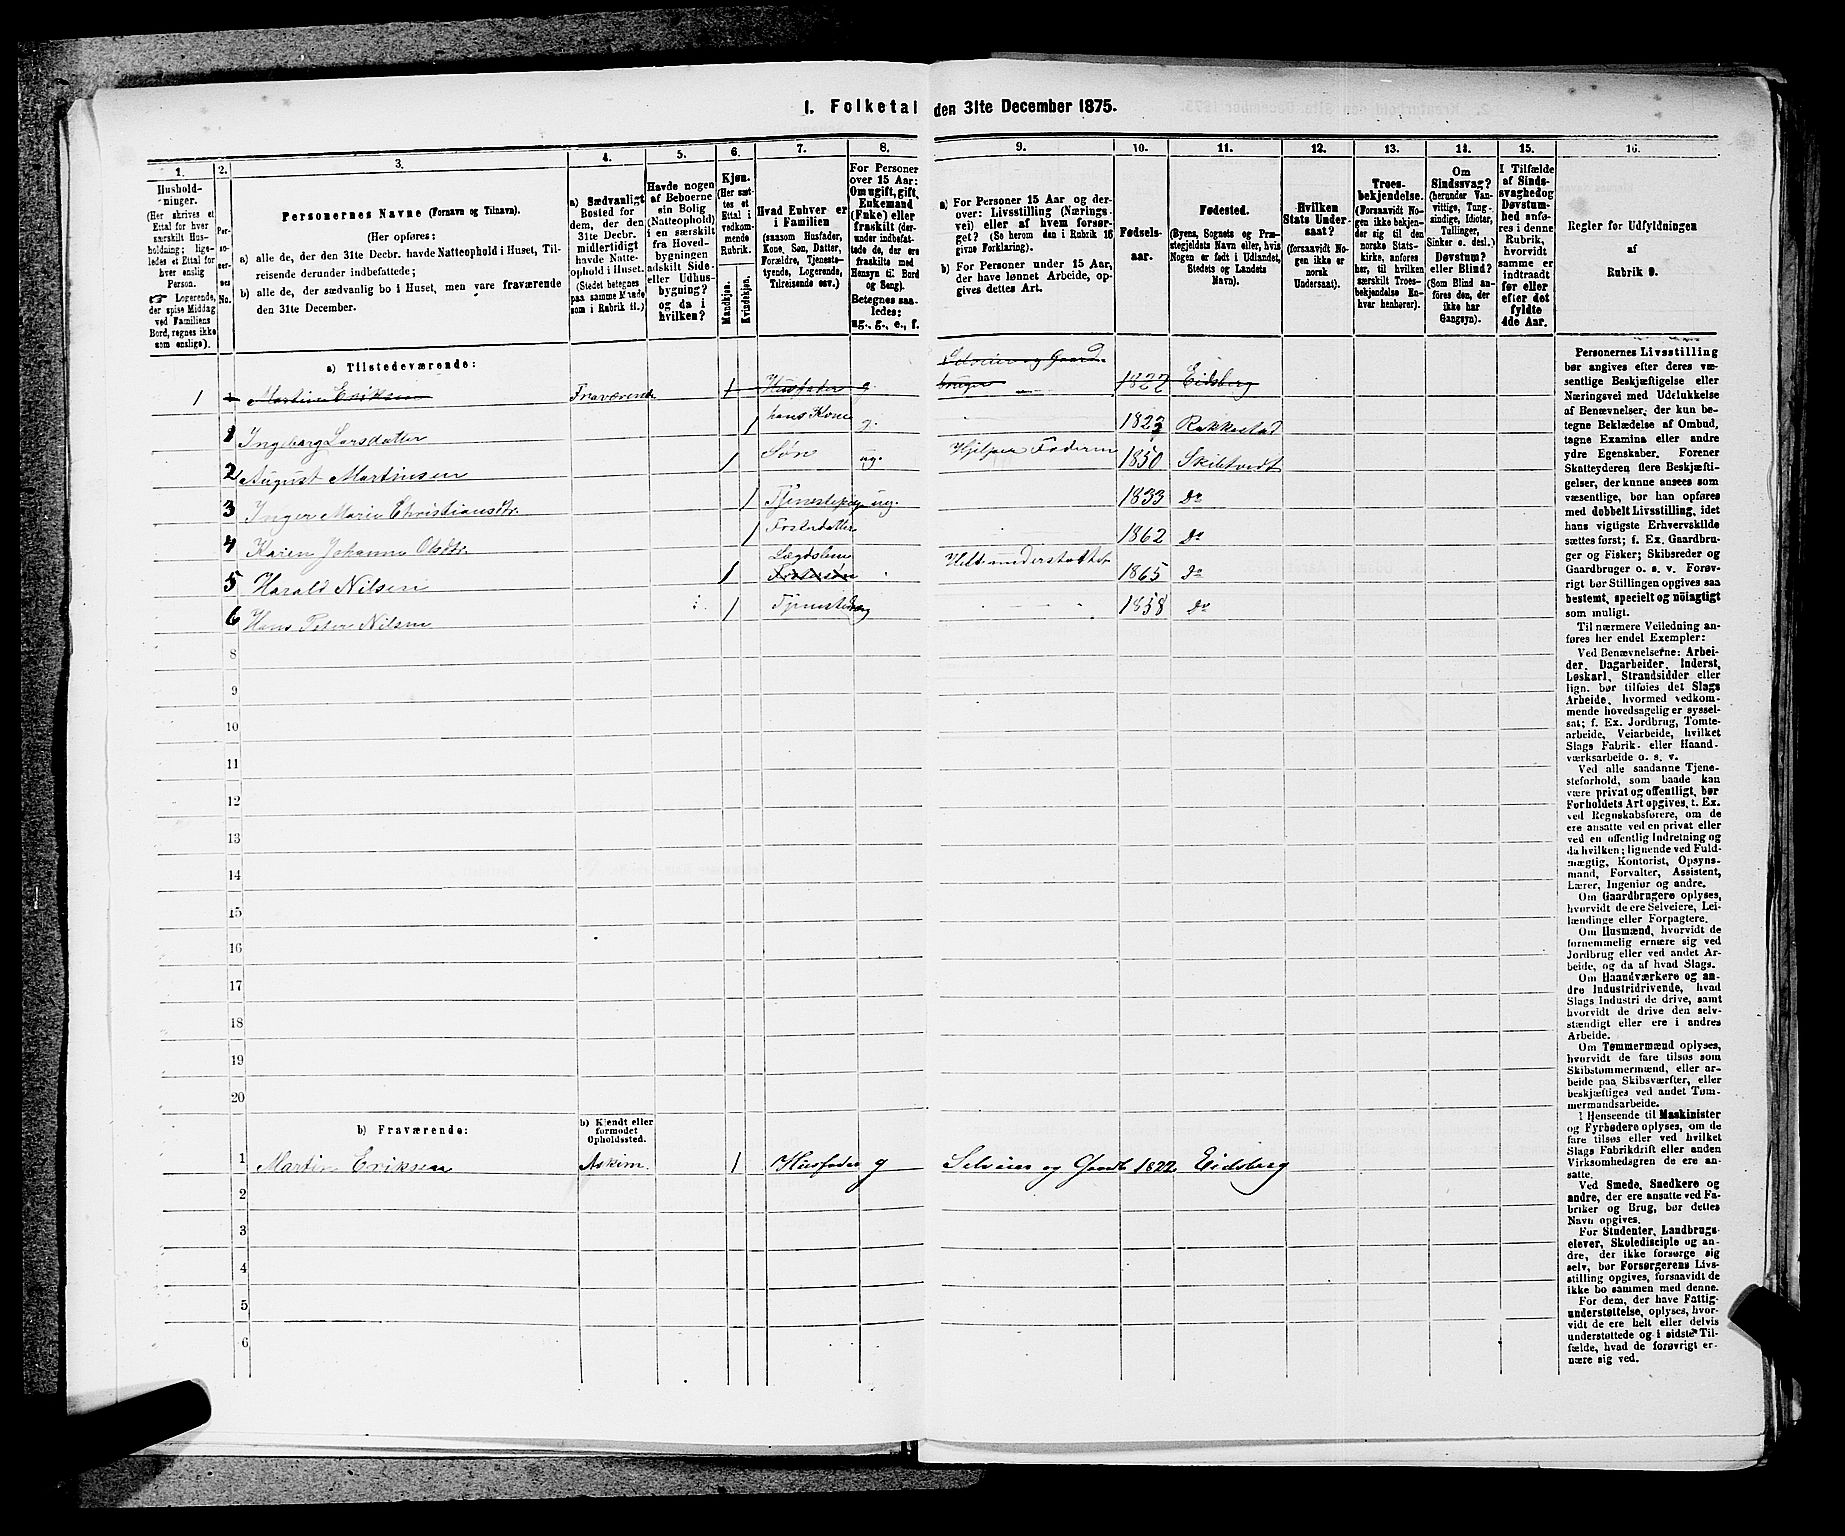 1. Folketal den 31te December 1875.
1. 2. 3. 4. 5. 6. 7. 8. 9. 10. 11. 12. 13. 14. 15. 16.
Hushold-
ninger.
(Her skrives et
Ettal for hver
særskilt Hus-
holdning; lige-
ledes et Ettal for
hver enslig
Person.
☞ Logerende,
der spise Middag
ved Familiens
Bord, regnes ikke
som enslige).
Per-
soner-
nes
No.
Personernes Navne (Fornavn og Tilnavn).
(Her opføres:
a) alle de, der den 31te Decbr. havde Natteophold i Huset, Til-
reisende derunder indbefattede;
b) alle de, der sædvanlig bo i Huset, men vare fraværende
den 31te December.
a) Sædvanligt
Bosted for
dem, der den
31te Decbr.
midlertidigt
havde Natte-
ophold i Huset.
(Stedet betegnes
paa samme Maade
som i Rubrik 11.)
Havde nogen
af Beboerne
sin Bolig
(Natteophold)
i en særskilt
fra Hoved-
bygningen
adskilt Side-
eller Udhus-
bygning?
og da i
hvilken?
Kjøn.
(Her sæt-
tes et
Ettal i
vedkom-
mende
Rubrik.
Mandkjøn.
Kvindekjøn.
Hvad Enhver er
i Familien
(saasom Husfader,
Kone, Søn, Datter,
Forældre, Tjeneste-
tyende, Logerende,
Tilreisende osv.)
For Personer
over 15 Aar:
Om ugift, gift,
Enkemand
(Enke) eller
fraskilt (der-
under indbefat-
tede de, der ere
fraskilte med
Hensyn til Bord
og Seng).
Betegnes saa-
ledes:
ug., g., e., f.
a) For Personer 15 Aar og der-
over: Livsstilling (Nærings-
vei) eller af hvem forsør-
get? (Se herom den i Rubrik 16
givne Forklaring).
b) For Personer under 15 Aar,
der have lønnet Arbeide, op-
gives dettes Art.
Fødsels-
aar.
Fødested.
(Byens, Sognets og Præ-
stegjeldets Navn eller, hvis
Nogen er født i Udlandet,
Stedets og Landets
Navn).
Hvilken
Stats Under-
saat?
(forsaavidt No-
gen ikke er
norsk
Undersaat).
Troes-
bekjendelse.
(Forsaavidt No-
gen ikke bekjen-
der sig til den
norske Stats-
kirke, anføres
her, til hvilken
særskilt Troes-
bekjendelse En-
hver henhører).
Om
Sindssvag?
(herunder Van-
vittige, Tung-
sindige, Idioter,
Tullinger,
Sinker o. desl.)
Døvstum?
eller Blind?
(Som Blind an-
føres den, der
ikke har
Gangsyn).
I Tilfælde
af Sinds-
svaghed og
Døvstum-
hed anfø-
res i denne
Rubrik,
hvorvidt
samme er
indtraadt
før eller
efter det
fyldte
4de Aar.
Regler for Udfyldningen
af
Rubrik 9.
a) Tilstedeværende:
1 1 Martin Eriksen Fraværende 1 Husfader g. Selveier og Gaard-
bruger 1822 Eidsberg
1 Ingeborg Larsdatter 1 hans Kone g. 1823 Rakkestad
2 August Martinsen 1 Søn ug. Hjelper Faderen 1850 Skibtvedt
3 Inger Marie Christiansdtr. 1 Tjenestepige ug. 1833 Do
4 Karen Johanne Olsdtr. 1 Fosterdatter 1862 Do
5 Harald Nilsen 1 Lægdslem
Fostersøn Helt understøttet 1865 Do
6 Hans Peter Nilsen 1 1858 Do
8
9
10
11
12
13
14
15
16
17
18
19
20
b) Fraværende:
b) Kjendt eller
formodet
Opholdssted.
1 Martin Eriksen Askim. 1 Husfader g Selveier og Gaardb 1822 Eidsberg
2
3
4
5
6
Personernes Livsstilling
bør angives efter deres væ-
sentlige Beskjæftigelse eller
Næringsvei med Udelukkelse
af Benævnelser, der kun be-
tegne Beklædelse af Ombud,
tagne Examina eller andre
ydre Egenskaber. Forener
Skatteyderen flere Beskjæfti-
gelser, der kunne ansees som
væsentlige, bør han opføres
med dobbelt Livsstilling, idet
hans vigtigste Erhvervskilde
sættes først; f. Ex. Gaardbru-
ger og Fisker; Skibsreder og
Gaardbruger o. s. v. Forøv-
rigt bør Stillingen opgives saa
bestemt, specielt og nøiagtigt
som muligt.
Til nærmere Veiledning an-
føres her endel Exempler:
Ved Benævnelserne: Arbei-
der, Dagarbeider, Inderst,
Løskarl, Strandsidder eller
lign. bør tilføies det Slags
Arbeide, hvormed vedkom-
mende hovedsagelig er syssel-
sat; f. Ex. Jordbrug, Tomte-
arbeide, Veiarbeide, hvilket
Slags Fabrik- eller Haand-
værksarbeide o. s. v.
Ved alle saadanne Tjene-
steforhold, som baade kan
være privat og offentligt, bør
Forholdets Art opgives, t. Ex.
ved Regnskabsførere, om de
ere ansatte ved en privat eller
ved en offentlig Indretning og
da hvilken; lignende ved Fuld-
mægtig, Kontorist, Opsyns-
mand, Forvalter, Assistent,
Lærer, Ingeniør og andre.
Om Gaardbrugere oplyses,
hvorvidt de ere Selveiere, Lei-
lændinge eller Forpagtere.
Om Husmænd, hvorvidt de
fornemmelig ernære sig ved
Jordbrug eller ved andet Ar-
beide, og da af hvad Slags.
Om Haandværkere og an-
dre Industridrivende, hvad
Slags Industri de drive, samt
hvorvidt de drive den selv-
stændigt eller ere i andres
Arbeide.
Om Tømmermænd oplyses,
hvorvidt de fare tilsøs som
Skibstømmermænd, eller ar-
beide paa Skibsværfter, eller
beskjæftiges ved andet Tøm-
mermandsarbeide.
I Henseende til Maskinister
og Fyrbødere oplyses, om de
fare tilsøs eller ved hvilket
Slags Fabrikdrift eller anden
Virksomhedsgren de ere an-
satte.
Ved Smede, Snedkere og
andre, der ere ansatte ved Fa-
briker og Brug, bør dettes
Navn opgives.
For Studenter, Landbrugs-
elever, Skoledisciple og an-
dre, der ikke forsørge sig
selv, bør Forsørgerens Livs-
stilling opgives, forsaavidt de
ikke bo sammen med denne.
For dem, der have Fattig-
understøttelse, oplyses, hvor-
vidt de ere helt eller delvis
understøttede og i sidste Til-
fælde, hvad de forøvrigt er-
nære sig ved.